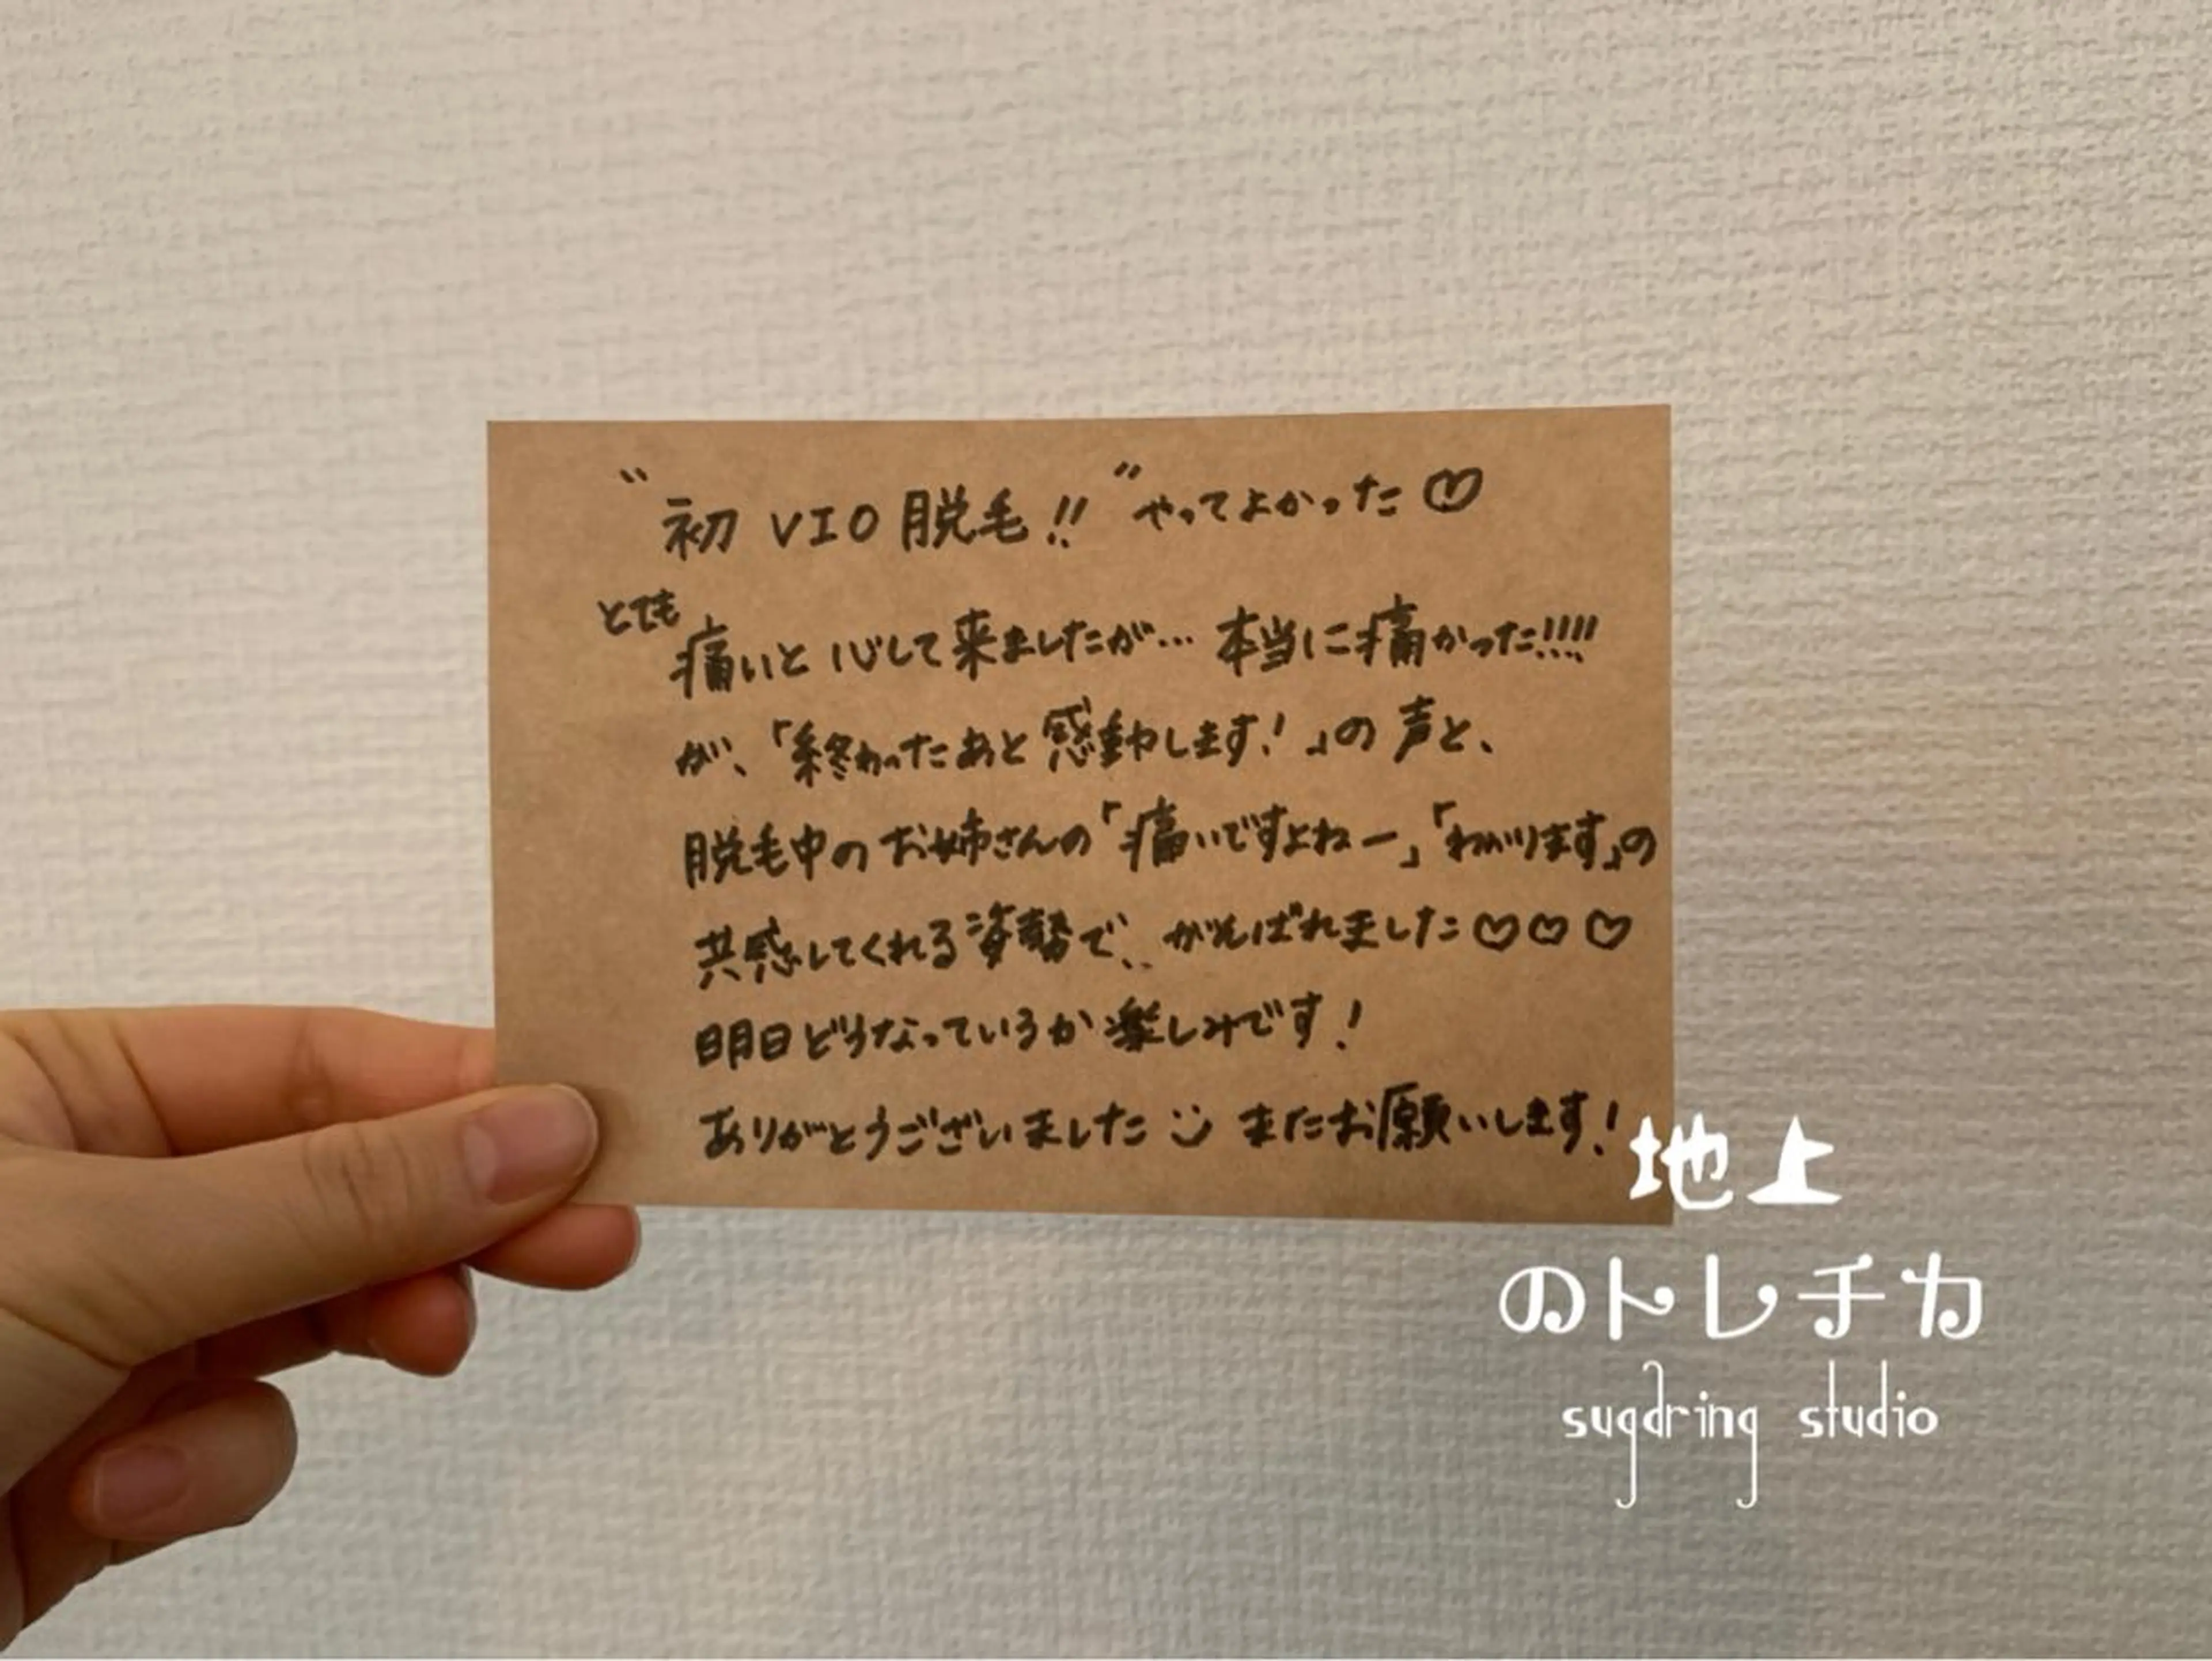 “初 VIO 脱毛!!” やってよかった♡
とても痛いと心して来ましたが… 本当に痛かった!!!!
が、「終わったあと感動します!」の声と、
脱毛中のお姉さんの「痛いですよねー」「わかります」の
共感してくれる姿勢で、がんばれました♡♡♡
明日どうなっているか楽しみです!
ありがとうございました またお願いします!
地上
のトレチカ
sugaring studio